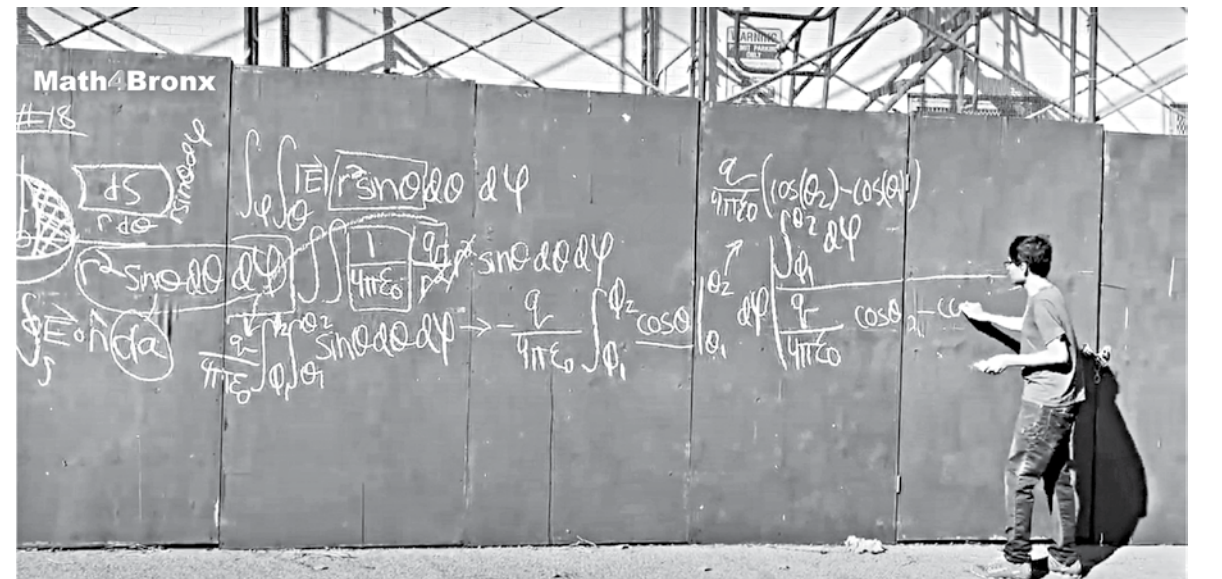 WARNING
PERMIT PARKING
ONLY
Math4Bronx
#18
dS
r dθ
r sinθ dφ
r² sinθ dθ dφ
∮_S E⃗ · n̂ da
∫_φ ∫_θ |E⃗| r² sinθ dθ dφ
∫∫ 1/4πε₀ q/r² r² sinθ dθ dφ
q/4πε₀ ∫_φ₁^φ₂ ∫_θ₁^θ₂ sinθ dθ dφ → - q/4πε₀ ∫_φ₁^φ₂ cosθ |_θ₁^θ₂ dφ
q/4πε₀ (cos(θ₂) - cos(θ₁))
∫_φ₁^φ₂ dφ
q/4πε₀ cosθ₂ - co